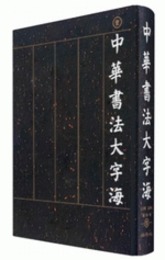 中華書法大字海
中華書法大字海